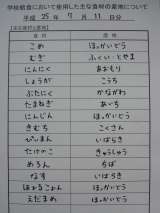 学校給食において使用した主な食材の産地について
平成 25年 7月 11日分
こめ ほっかいどう
むぎ ふくい・とやま
にんにく あおもり
しょうが こうち
ぶたにく かながわ
たまねぎ あいち
にんじん ほっかいどう
きむち こくさん
ぴーまん いばらき
たけのこ きゅうしゅう
めろん ちば
なす いばらき
ほっかいどう
えだまめ ほっかいどう